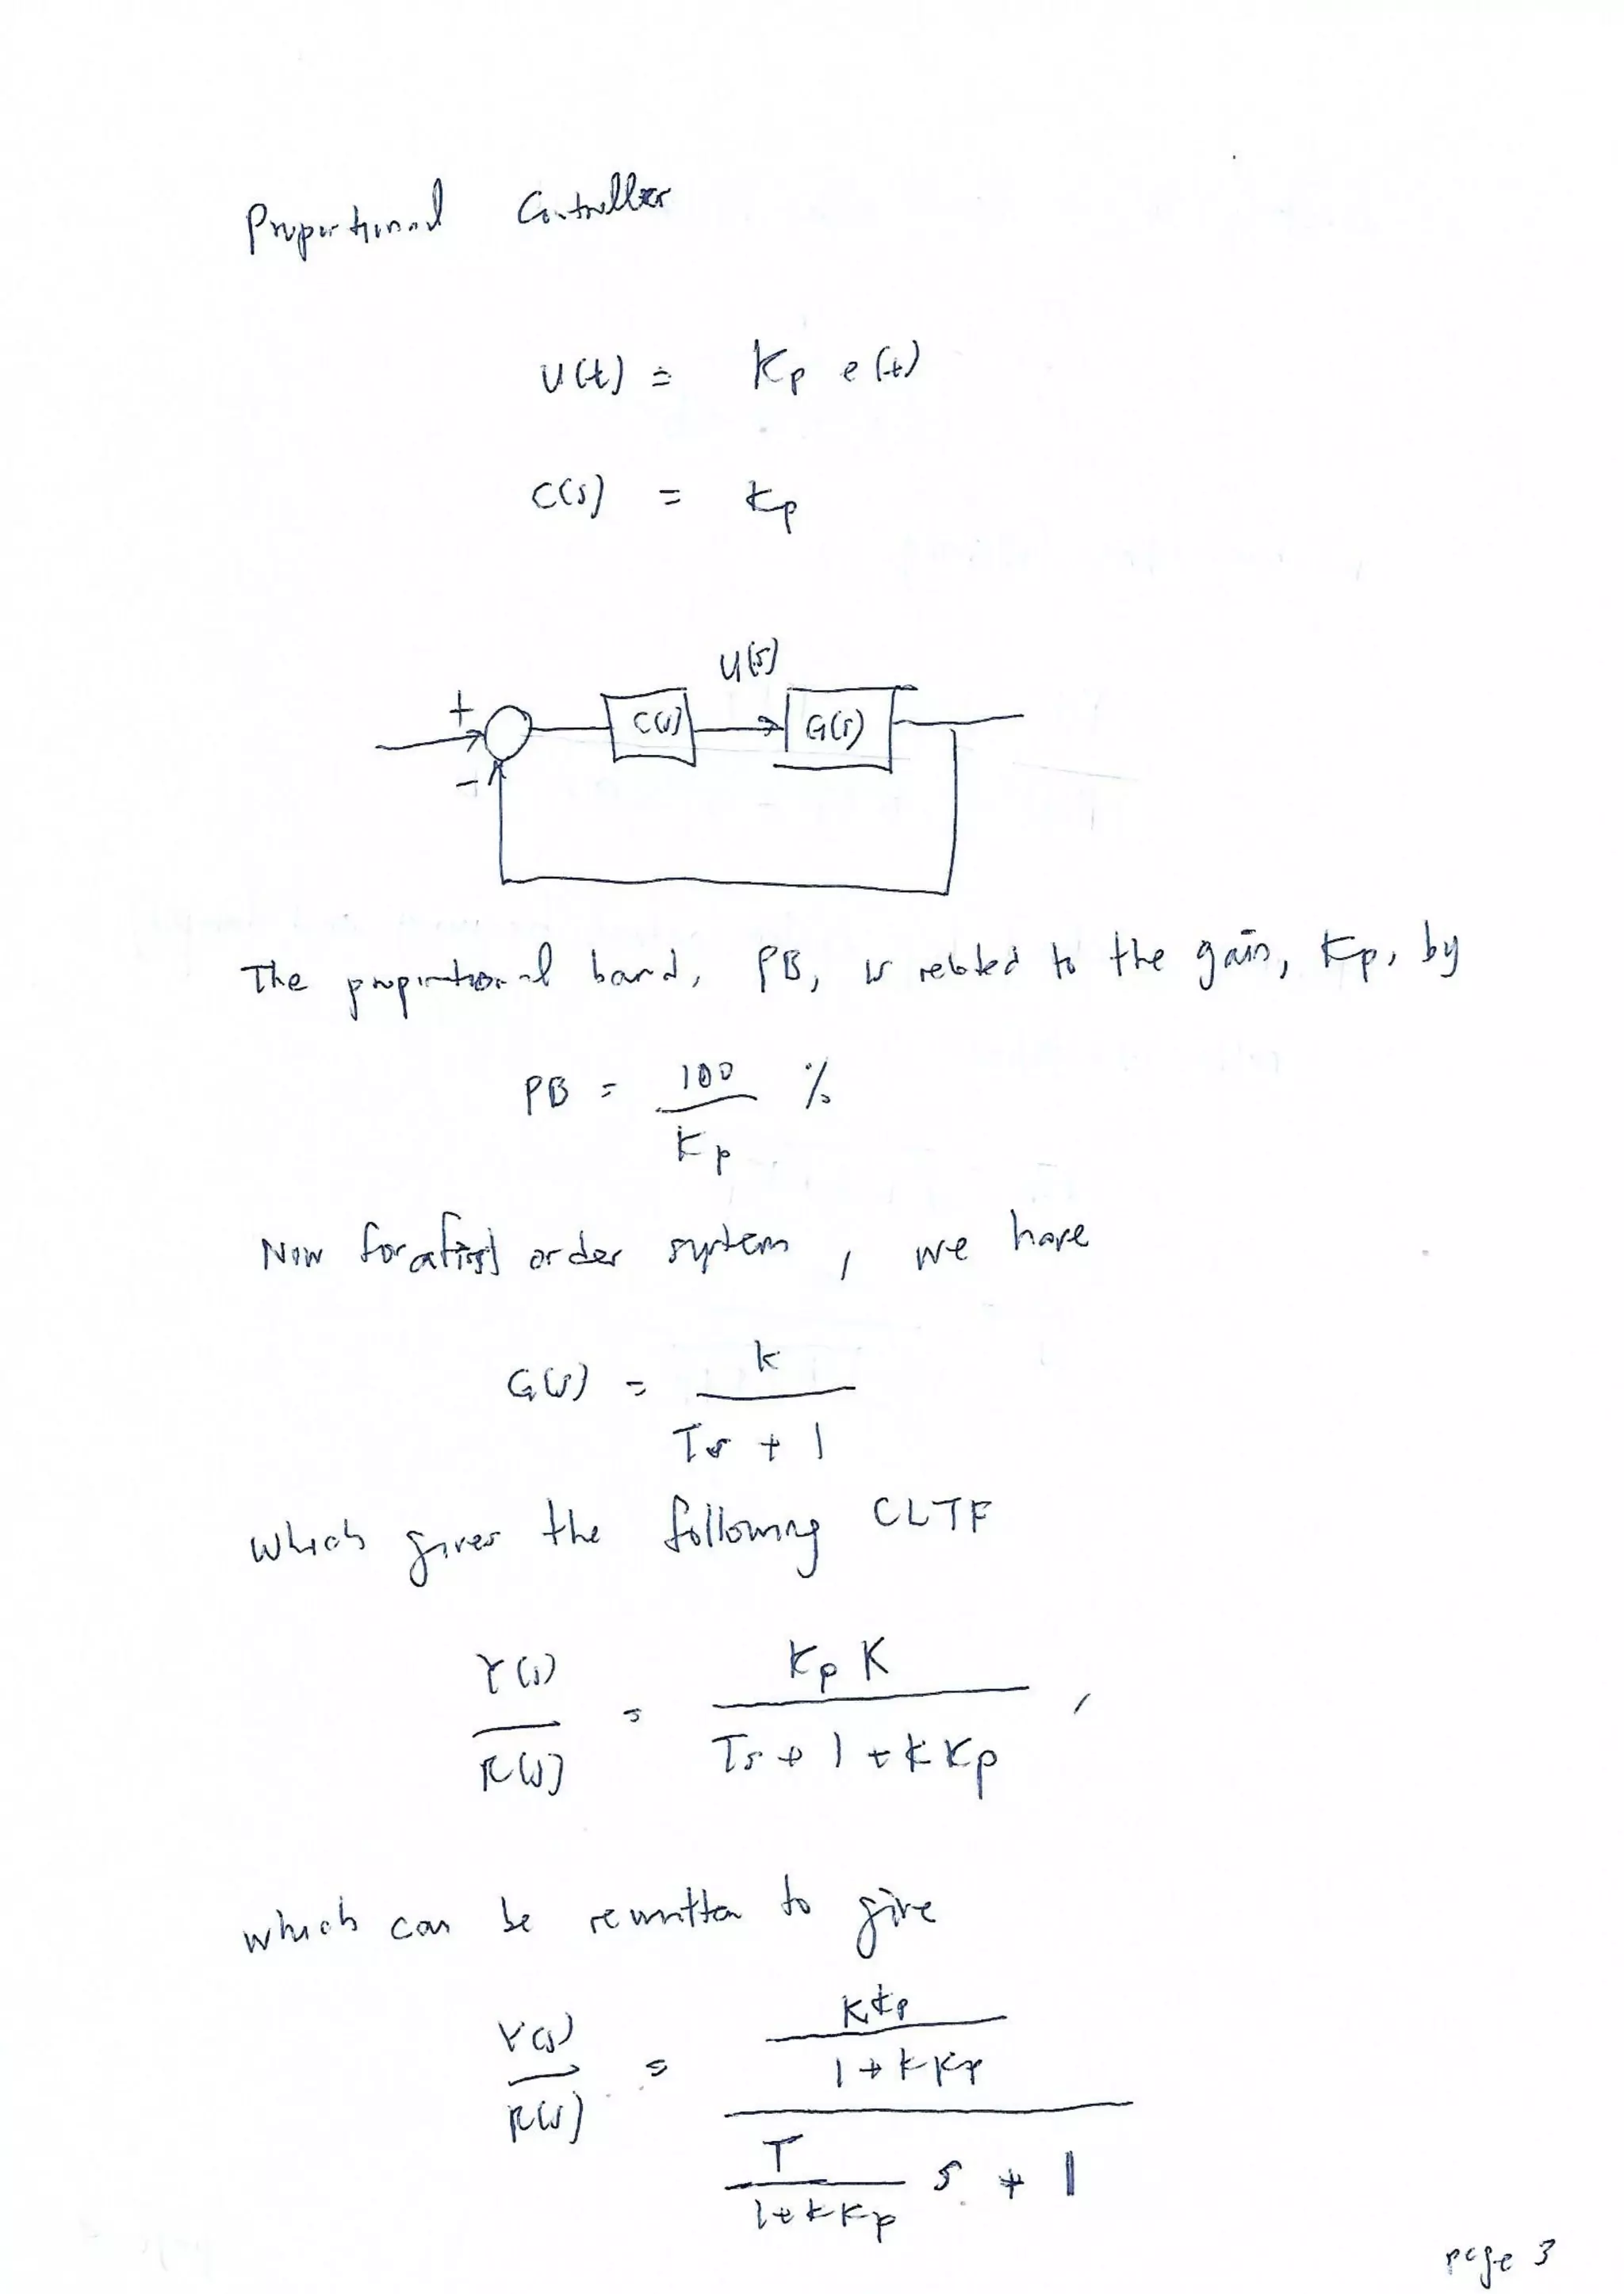 Proportional Controller
u(t) = Kp e(t)
C(s) = Kp
U(s)
+ C(s) G(s)
-
The proportional band, PB, is related to the gain, Kp, by
PB = 100 / Kp %
Now for a first order system, we have
G(s) = K / Ts + 1
which gives the following CLTF
Y(s) / R(s) = Kp K / Ts + 1 + K Kp ,
which can be rewritten to give
Y(s) / R(s) = K Kp / 1 + K Kp / T / 1 + K Kp s + 1
page 3